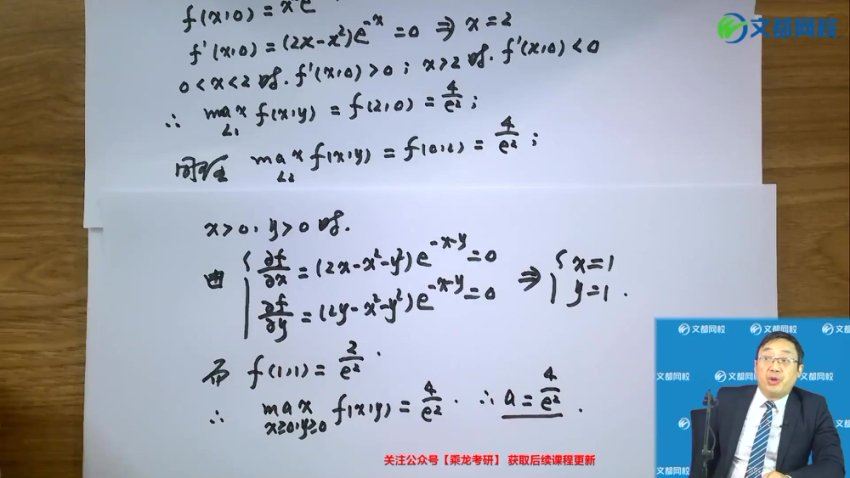 文都网校
f(x,0)=x²e
f'(x,0)=(2x-x²)e^{-x}=0 ⇒ x=2
0<x<2时, f'(x,0)>0; x>2时, f'(x,0)<0
∴ max_{L₁} f(x,y)=f(2,0)=4/e²;
同理 max_{L₂} f(x,y)=f(0,2)=4/e²;
x>0, y>0时.
由 { ∂f/∂x=(2x-x²-y²)e^{-x-y}=0
∂f/∂y=(2y-x²-y²)e^{-x-y}=0 ⇒ { x=1
y=1.
而 f(1,1)=2/e².
∴ max_{x≥0,y≥0} f(x,y)=4/e². ∴ a=4/e².
文都网校 文都网校
文都网校 文都网校
关注公众号【乘龙考研】 获取后续课程更新